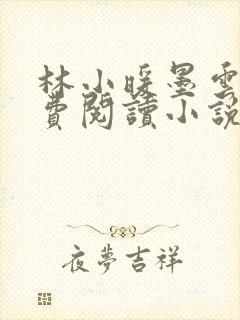 林小暖墨雲
費閱讀小說
夜夢吉祥